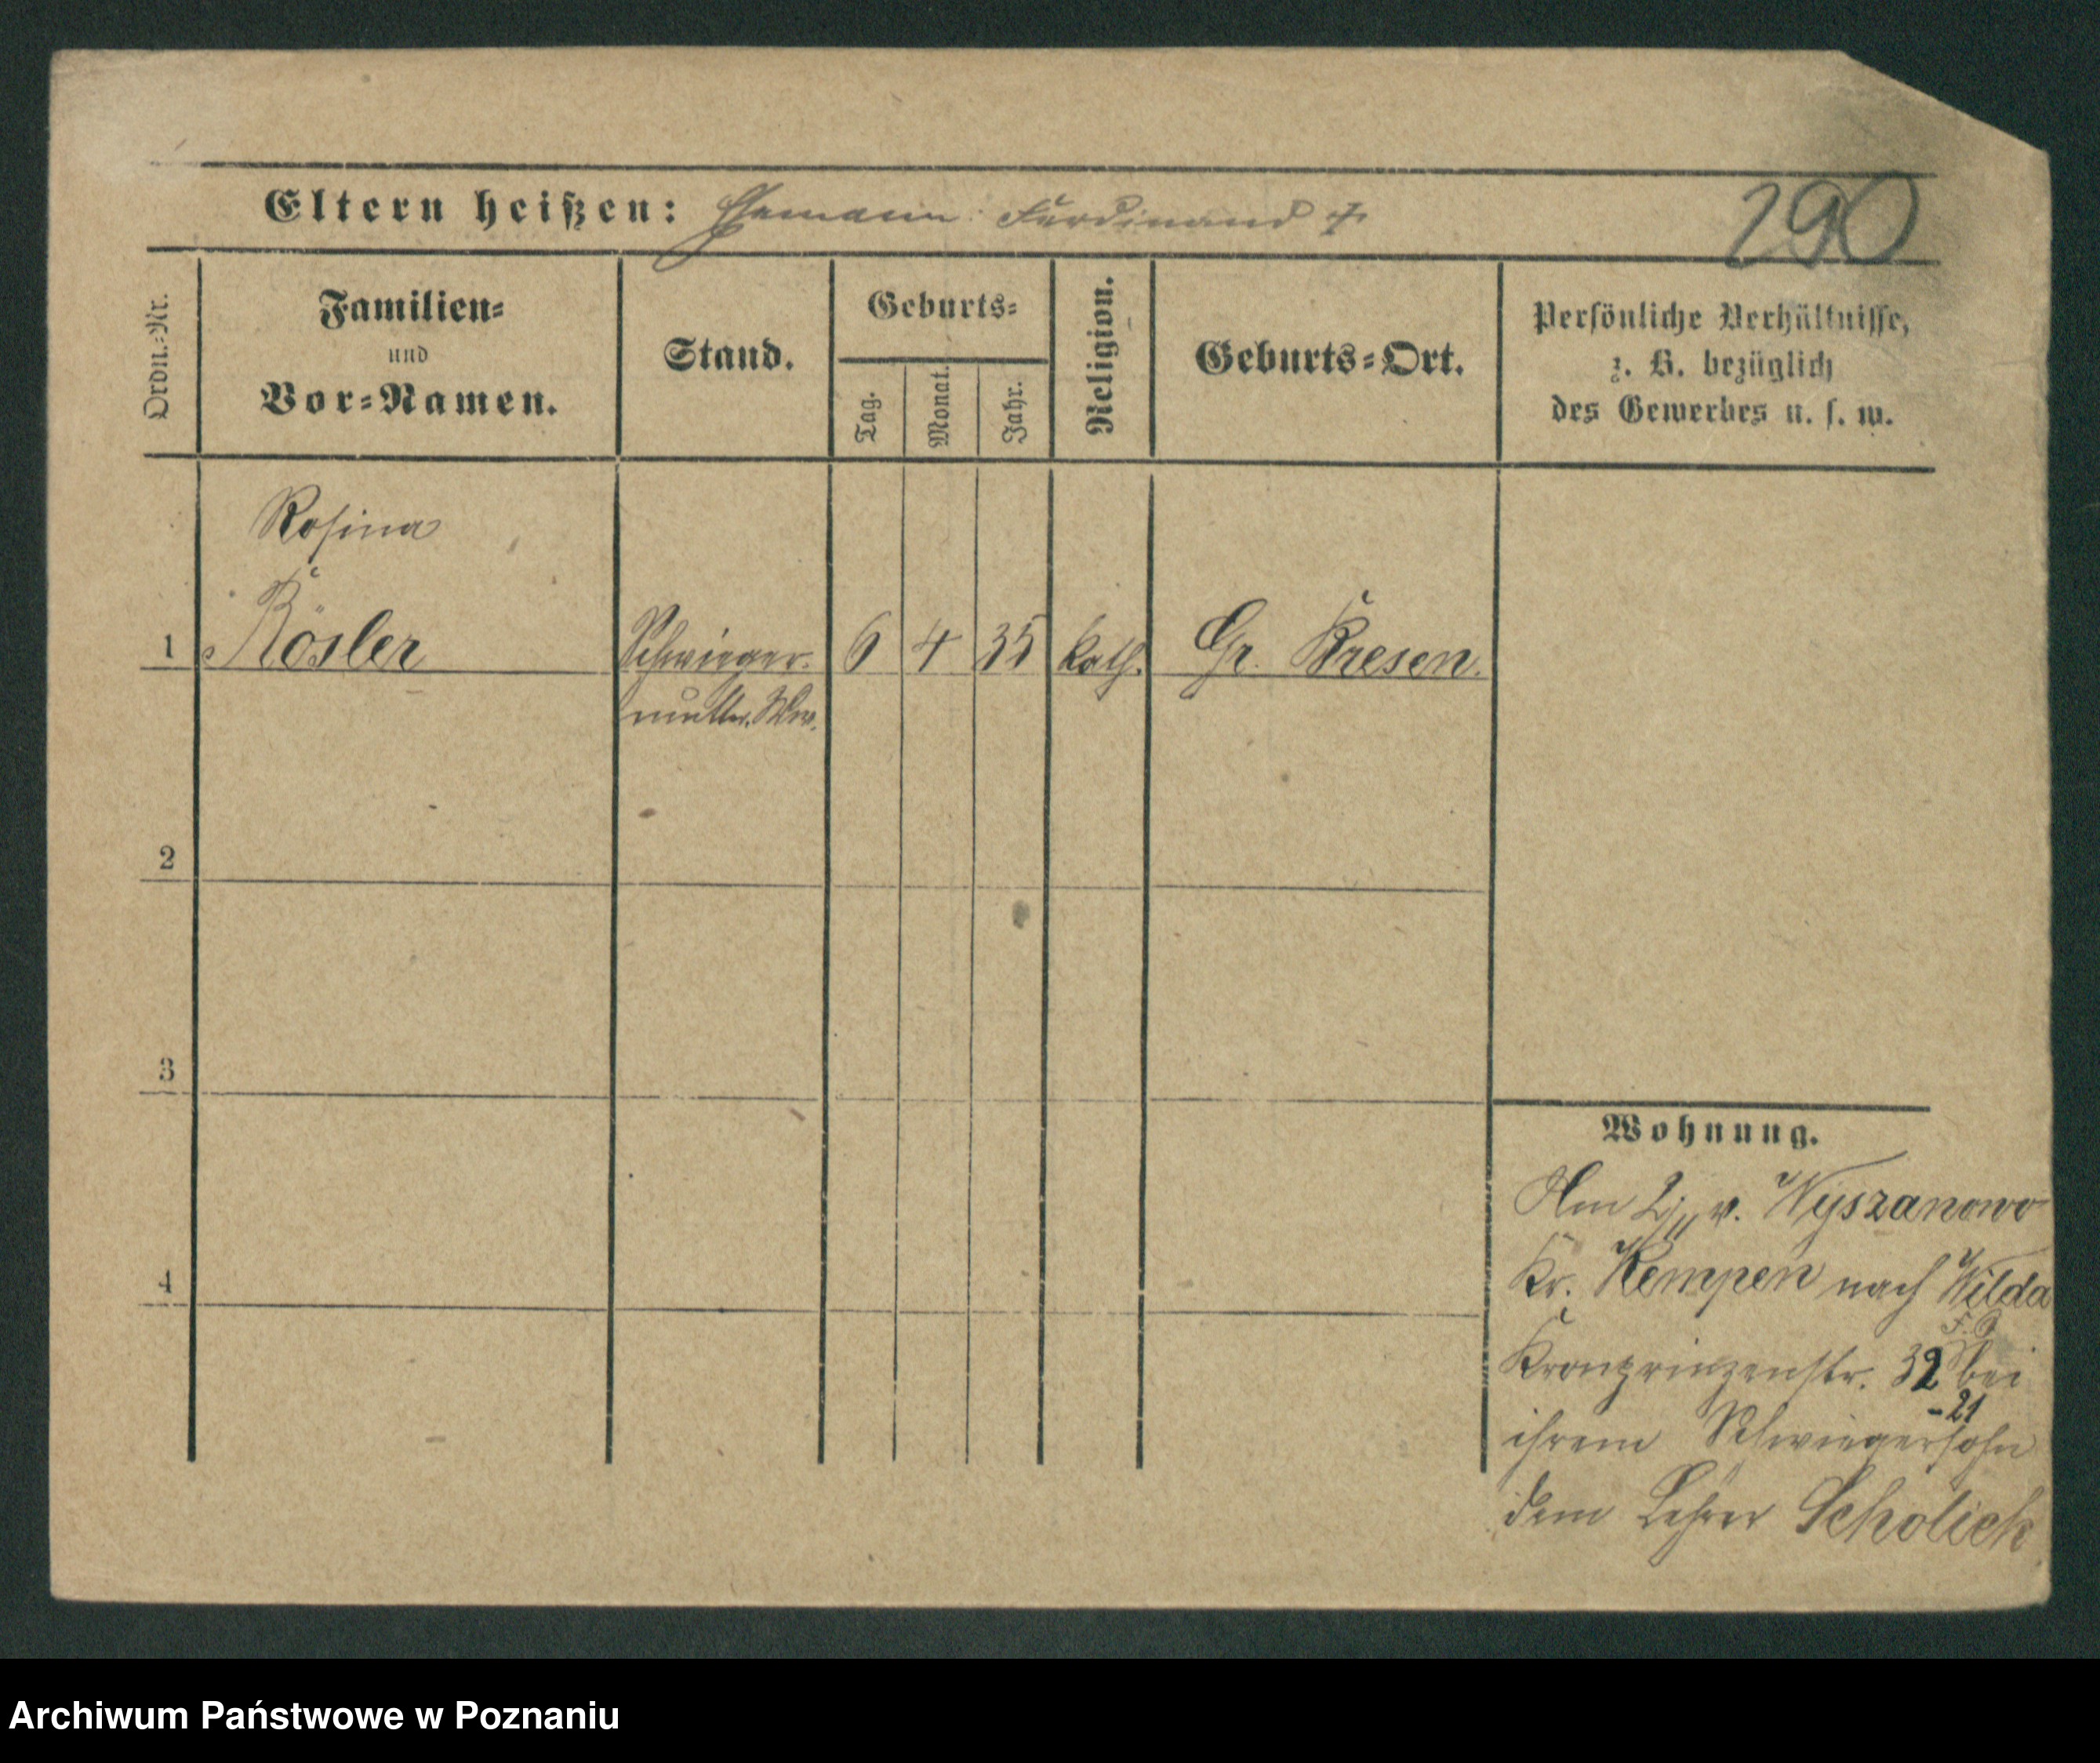 Eltern heißen: Ehemann: Ferdinand †
290
Ordn.-Nr.
Familien-
und
Vor-Namen.
Stand.
Geburts-
Tag.
Monat.
Jahr.
Religion.
Geburts-Ort.
Persönliche Verhältnisse,
z. B. bezüglich
des Gewerbes u. s. w.
Rosina
1 Rösler Schwieger- 6 4 35 kath. Gr. Kresen.
mutter. Ww.
2
3
4
Wohnung.
Am 2/11 v. Wyszanowo
Kr. Kempen nach Wilda
Kronprinzenstr. 32 bei
-21
ihrem Schwiegersohn
dem Lehrer Scholich
Archiwum Państwowe w Poznaniu